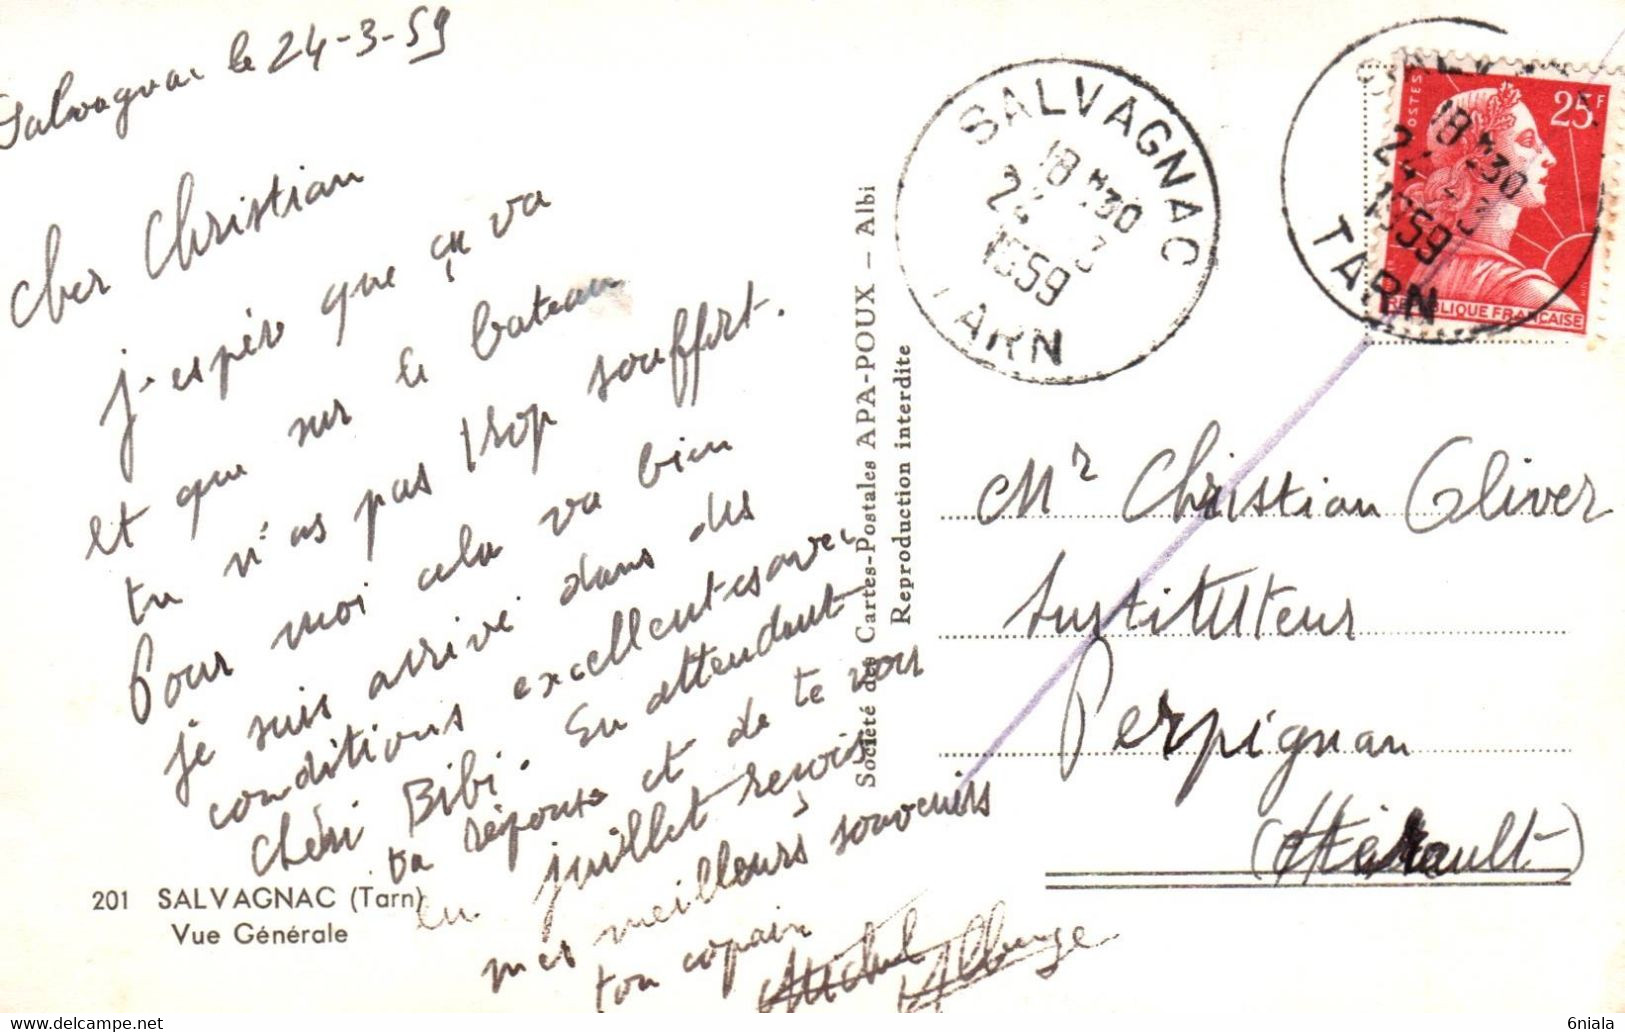 Salvagnac le 24-3-59
Cher Christian
j'espère que ça va
et que sur le bateau
tu n'as pas trop souffert.
Pour moi cela va bien
je suis arrivé dans des
conditions excellentes avec
Chéri Bibi. En attendant
ta réponse et de te voir
en juillet reçois
mes meilleurs souvenirs
ton copain
Michel
201 SALVAGNAC (Tarn)
Vue Générale
Société des Cartes-Postales APA-POUX - Albi
Reproduction interdite
SALVAGNAC
18 H30
24 3
1959
TARN
POSTES
25F
REPUBLIQUE FRANÇAISE
18 H30
24 3
1959
TARN
Mr Christian Oliver
Instituteur
Perpignan
(Hérault)
6niala